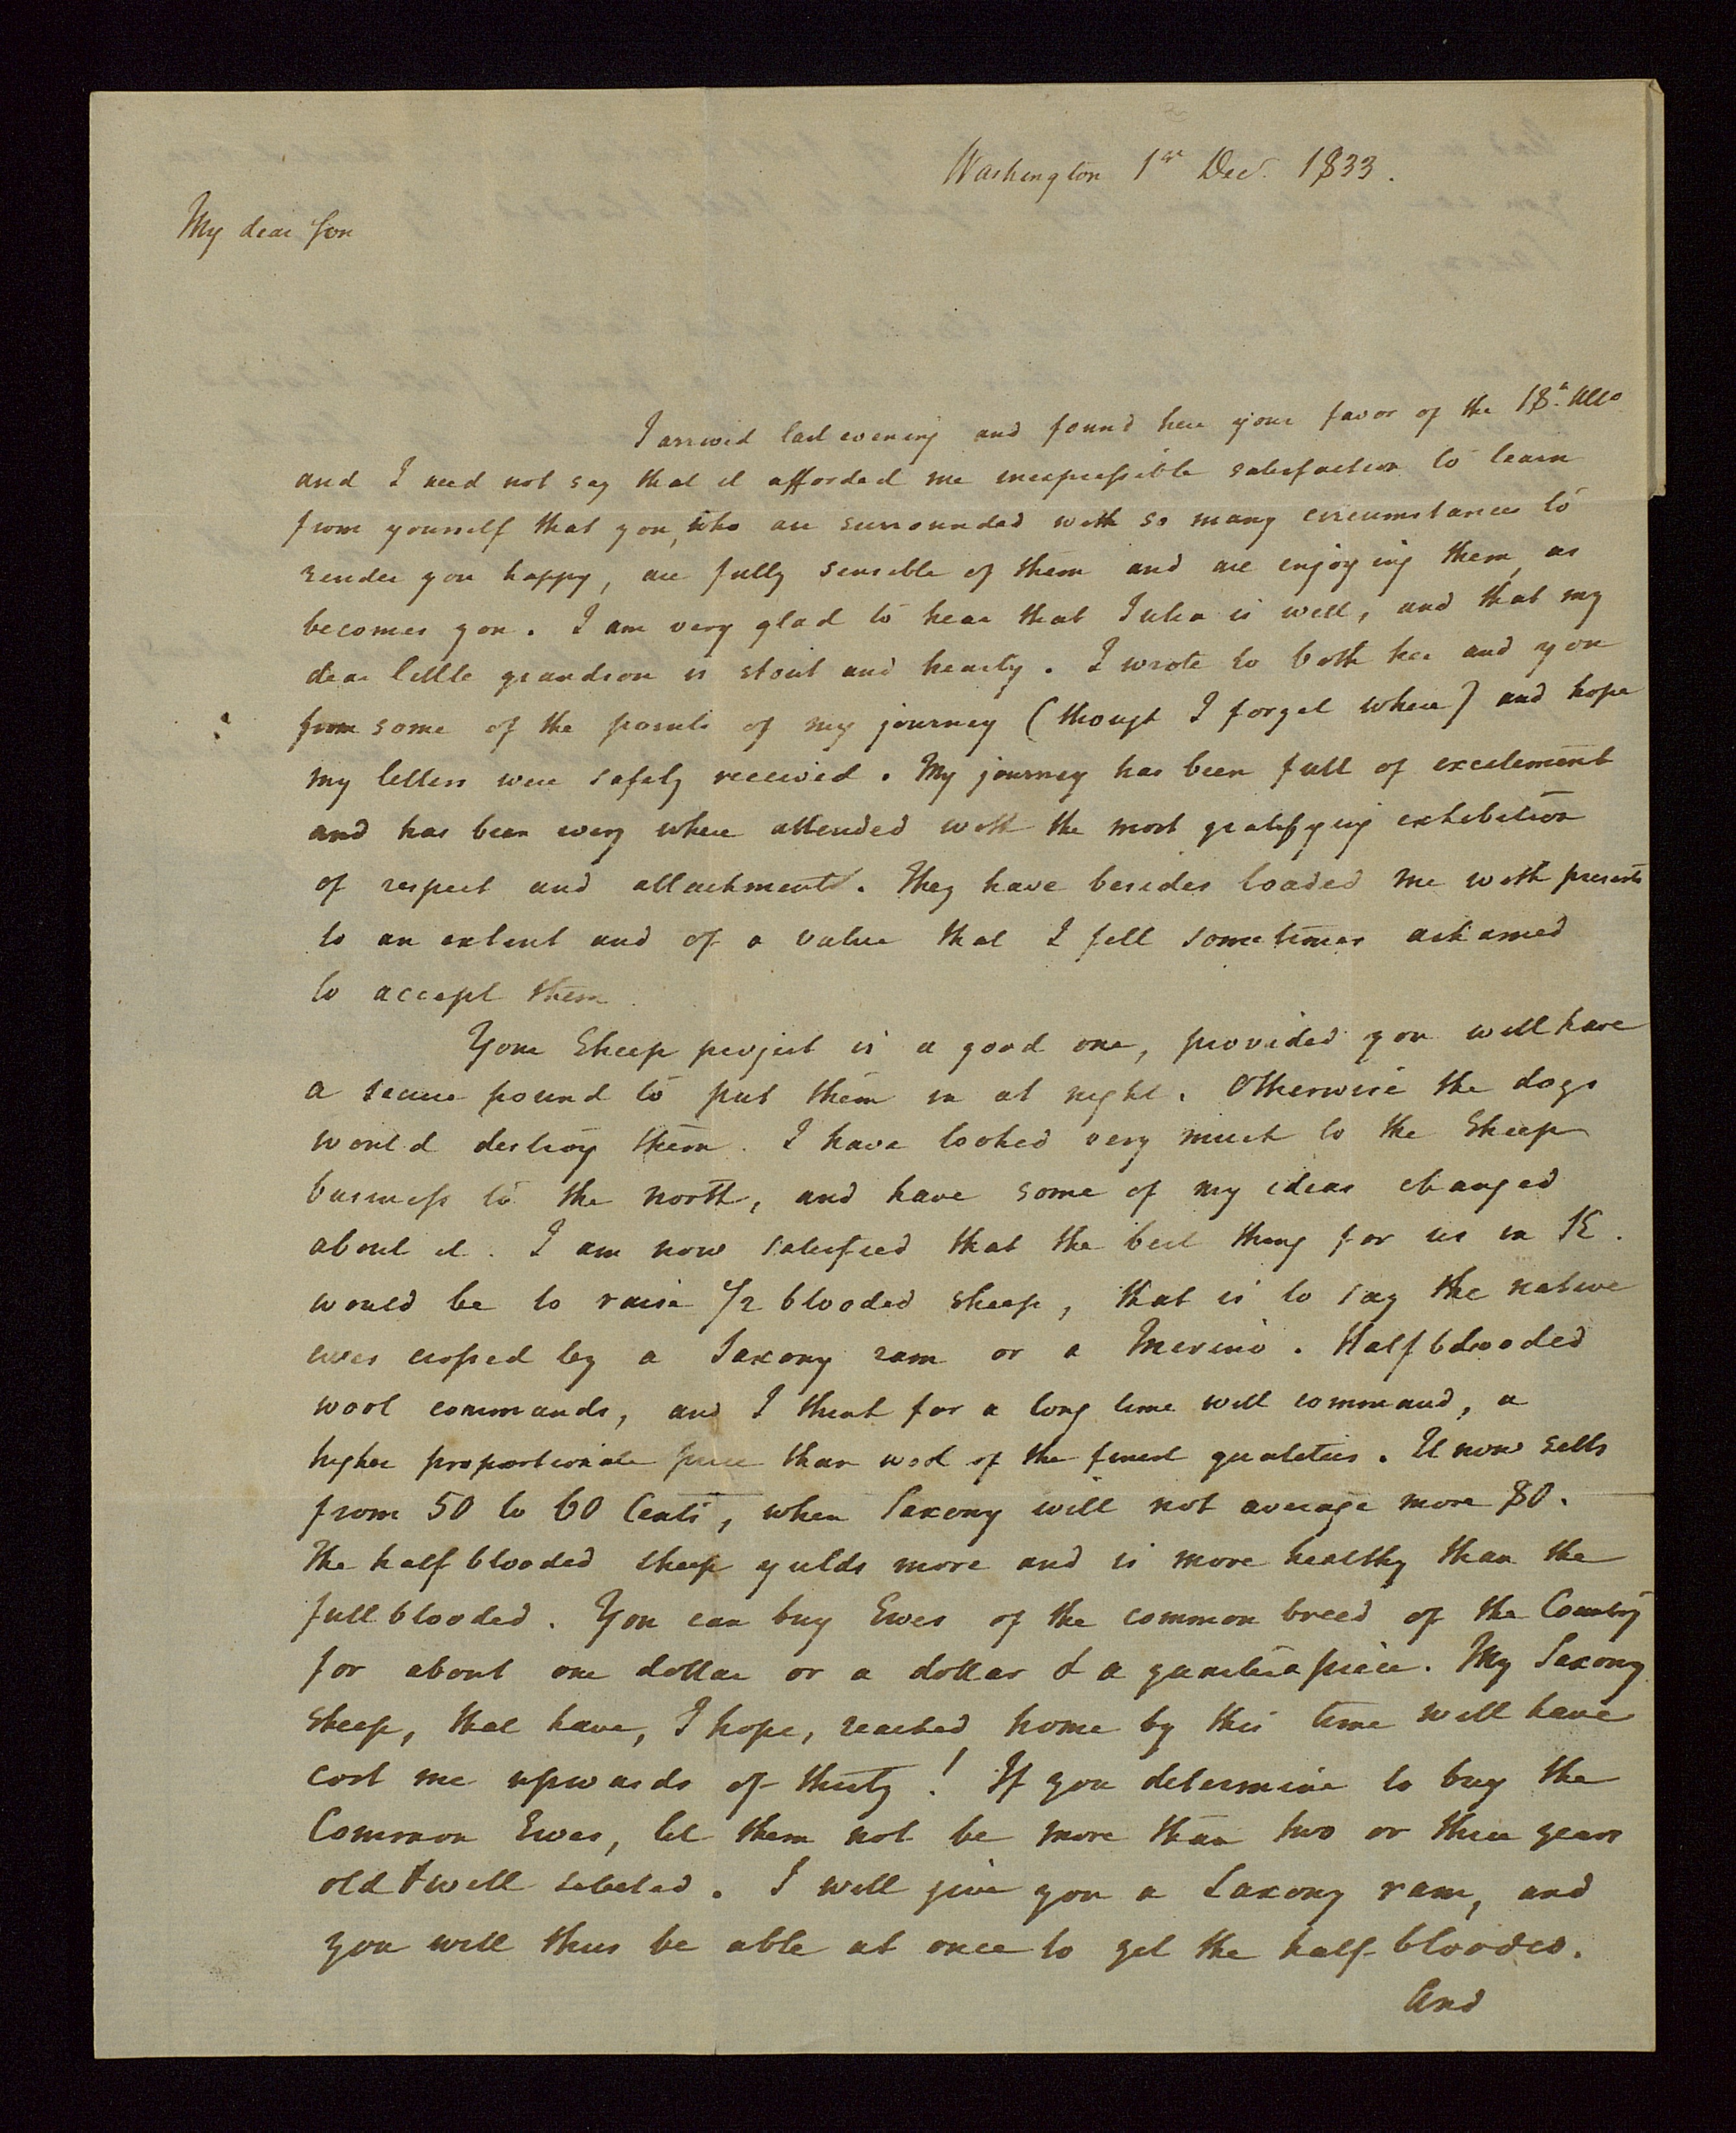 Washington 1st Dec. 1833.
My dear Son
I arrived last evening and found here your favor of the 18th Ulto
and I need not say that it afforded me inexpressible satisfaction to learn
from yourself that you, who are surrounded with so many circumstances to
render you happy, are fully sensible of them and are enjoying them, as
becomes you. I am very glad to hear that Julia is well, and that my
dear little grandson is stout and hearty. I wrote to both her and you
from some of the points of my journey (though I forget where) and hope
my letters were safely received. My journey has been full of excitement
and has been every where attended with the most gratifying exhibition
of respect and attachment. They have besides loaded me with presents
to an extent and of a value that I felt sometimes ashamed
to accept them.
Your Sheep project is a good one, provided you will have
a secure pound to put them in at night. Otherwise the dogs
would destroy them. I have looked very much to the Sheep
business to the north, and have some of my ideas changed
about it. I am now satisfied that the best thing for us in K.
would be to raise 1/2 blooded sheep, that is to say the native
ewes crossed by a Saxony ram or a Merino. Half blooded
wool commands, and I think for a long time will command, a
higher proportionate price than wool of the finest qualities. It now sells
from 50 to 60 Cents, when Saxony will not average more 80.
The half blooded sheep yields more and is more healthy than the
full blooded. You can buy Ewes of the common breed of the Country
for about one dollar or a dollar & a quarter apiece. My Saxony
sheep, that have, I hope, reached home by this time will have
cost me upwards of thirty! If you determine to buy the
Common Ewes, let them not be more than two or three years
old & well selected. I will give you a Saxony ram, and
you will thus be able at once to get the half blooded.
And